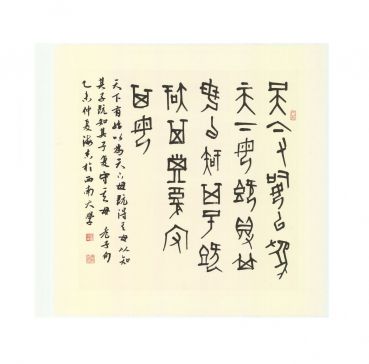 天下有始以為
天下母既得其
母以知其子既
知其子復守
其母
天下有始以為天下母既得其母以知
其子既知其子復守其母 老子句
乙未仲夏海 於西南大學